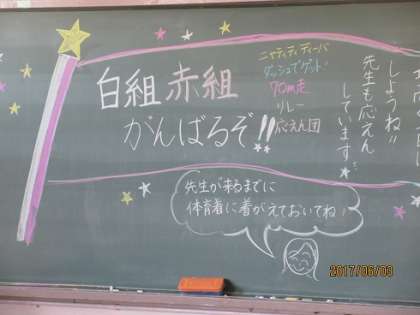 しようね!!
先生も応えん
しています。
白組 赤組
がんばるぞ!!
ニャティティディーバ
ダッシュでゲット
70m走
リレー
応えん団
先生が来るまでに
体育着に着がえておいてね!
2017/06/03